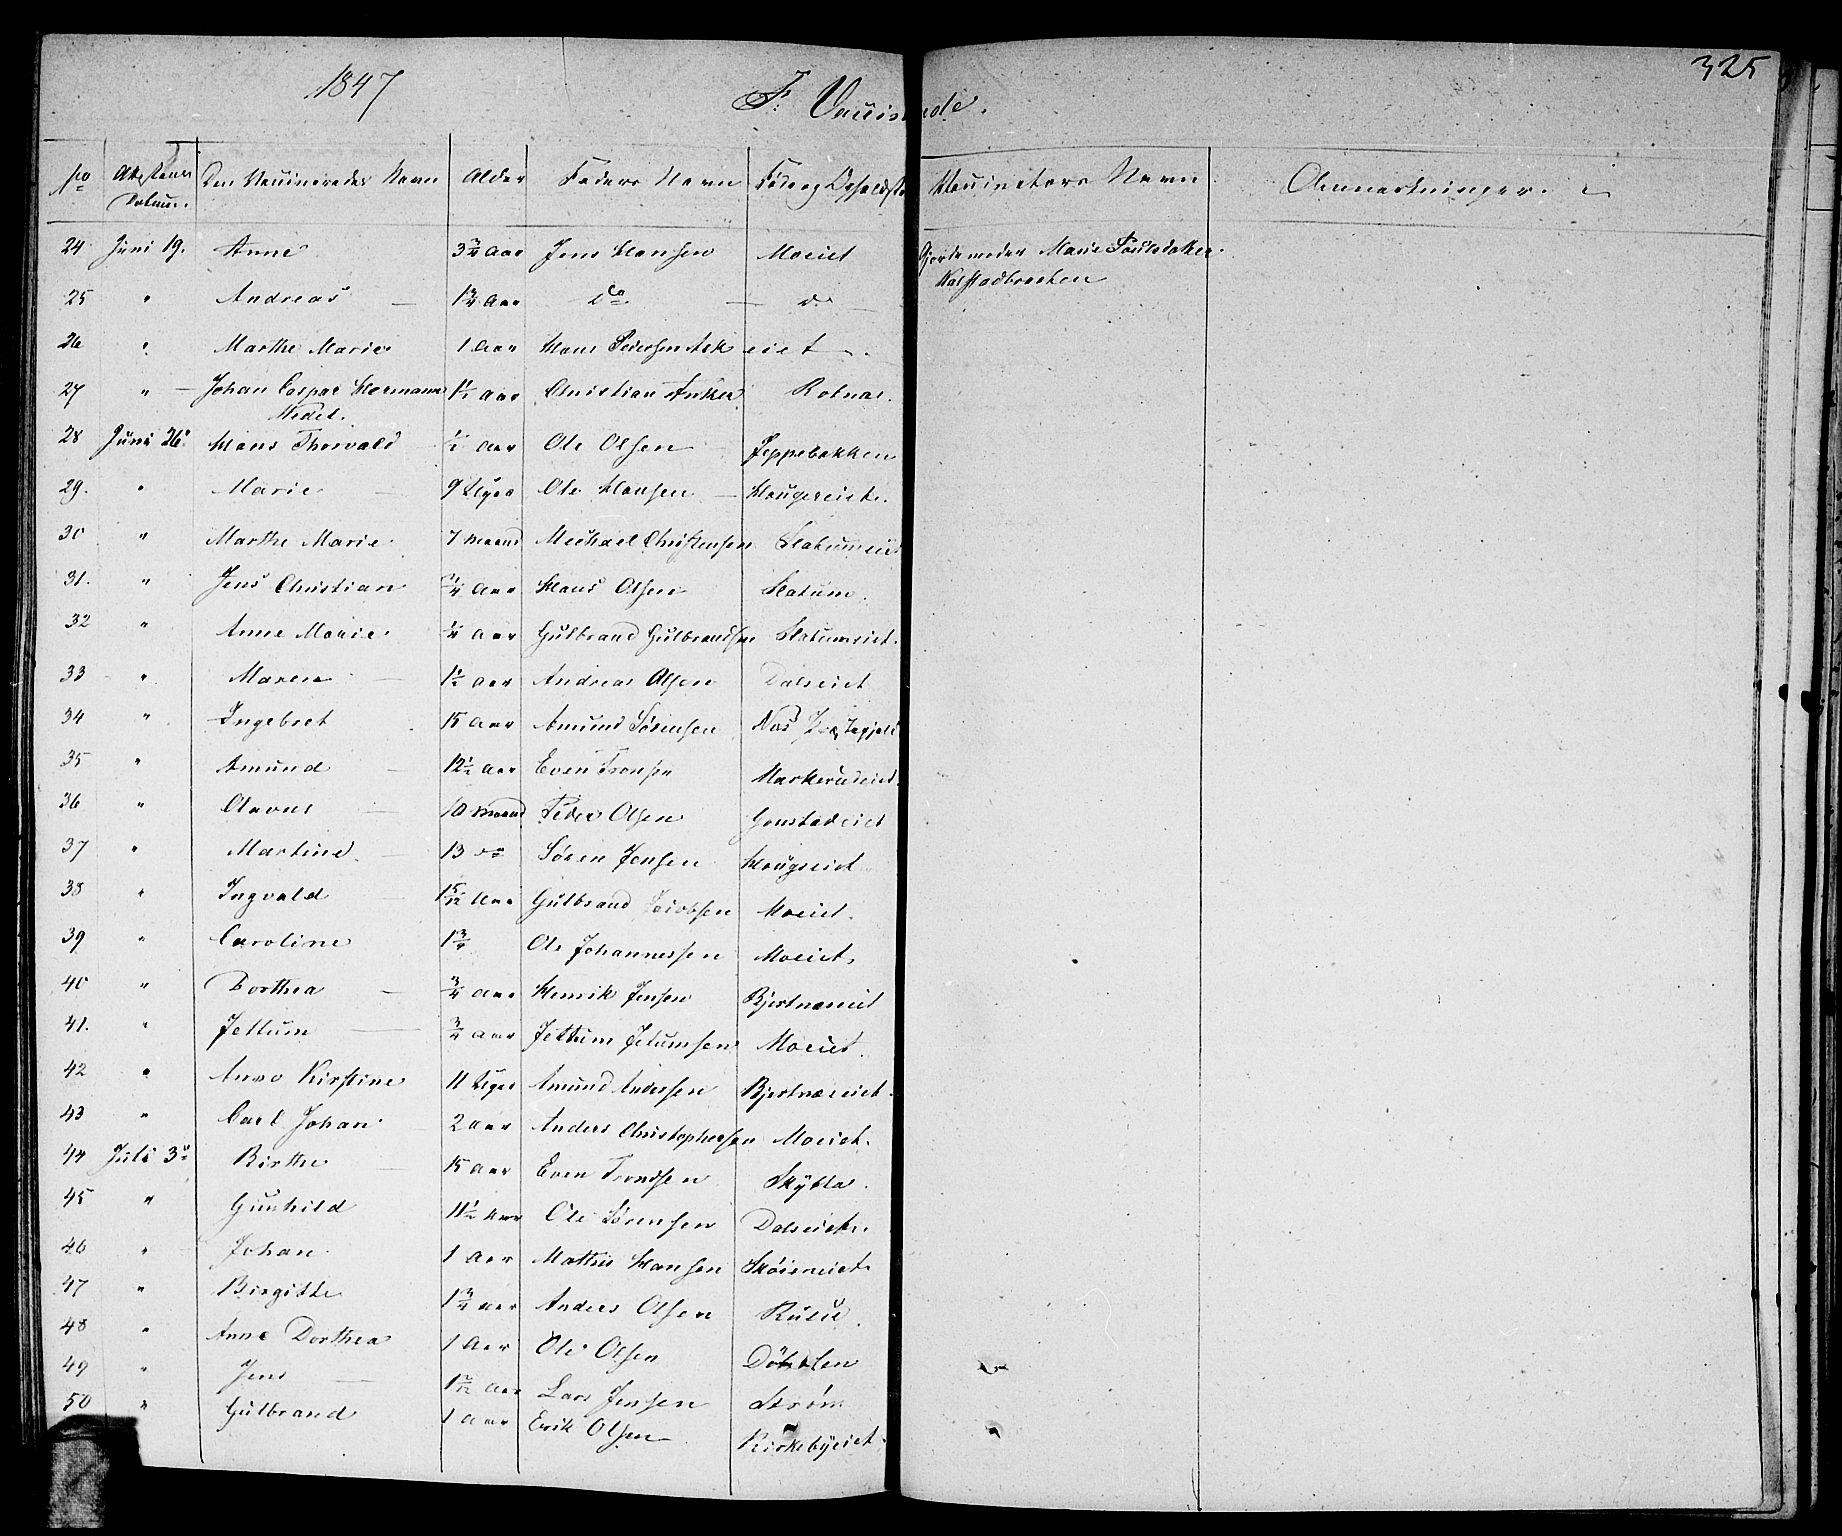 1847 F. Vaccinerede. 325
No Attestens Datum. Den Vaccineredes Navn Alder Faders Navn Føde og Opholdsste Vaccineters Navn Anmærkninger.
24 Juni 19. Anne 3 3/4 Aar Jens Hansen Moeiet Gjordemoder Marie Poulsdatter
25 " Andreas 1 3/4 Aar do d: Kolstadbraaten
26 " Marthe Marie 1 Aar Hans Pedersen Askeiet
27 " Johan Caspar Hermann 1 1/2 Aar Christian Anker Rotnæs.
Wedel.
28 Juni 26 Hans Thorvald 1/2 Aar Ole Olsen Jeppebakken
29. " Marie 9 Uger Ole Hansen Haugereiet.
30 " Marthe Marie 7 Maaned Michael Christensen Slatumeiet
31. " Jens Christian 3/4 Aar Hans Olsen Slatum.
32 " Anne Marie 1/4 Aar Gulbrand Gulbrandsen Slatumeiet.
33 " Maren 1 1/2 Aar Andreas Olsen Dalseiet
34 " Ingebret 15 Aar Amund Sørensen Næs Præstegjeld
35 " Amund 12 1/2 Aar Even Tronsen Markerudeiet.
36 " Olavus 10 Maaned Peder Olsen Gonstadeiet
37 " Martine 13 do Søren Jensen Haugseiet
38 " Ingvald 1 5/12 Aar Gulbrand Jacobsen Moeiet.
39 " Caroline 1 3/4 Ole Johannessen Moeiet.
40 " Dorthea 3/4 Aar Henrik Jensen Bjertnæseiet
41. " Jettum 3/4 Aar Jettum Jetumsen Moeiet.
42 " Anne Kirstine 11 Uger Amund Andersen Bjertnæseiet.
43 " Carl Johan 2 Aar Anders Christophersen Moeiet.
44 Juli 3 Birthe 15 Aar Even Trondsen Skytta.
45 " Gunhild 11 1/2 Aar Ole Sørensen Dalseiet.
46 " Johan 1 Aar Mathis Hansen Skøieneiet
47 " Birgitte 1 3/4 Aar Anders Olsen
48 " Anne Dorthea 1 Aar Ole Olsen Døhlen
49 " Jens Aar Lars Jensen Strøm
50 " Gulbrand 1 Aar Erik Olsen Kirkebyeiet.